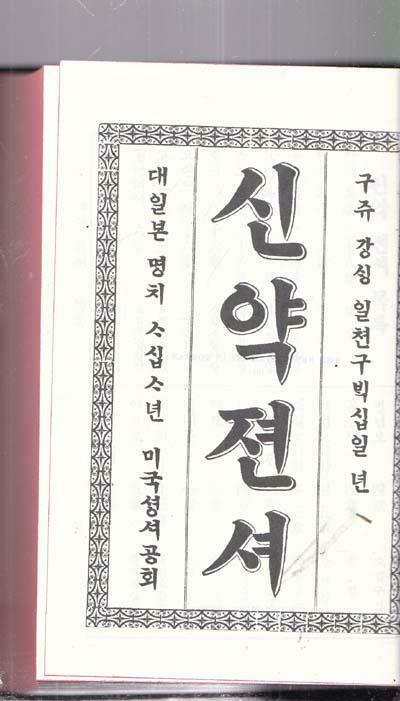 구쥬 강ᄉᆡᆼ 일천구ᄇᆡᆨ십일 년
신약젼셔
대일본 명치 ᄉᆞ십ᄉᆞ년 미국셩셔공회